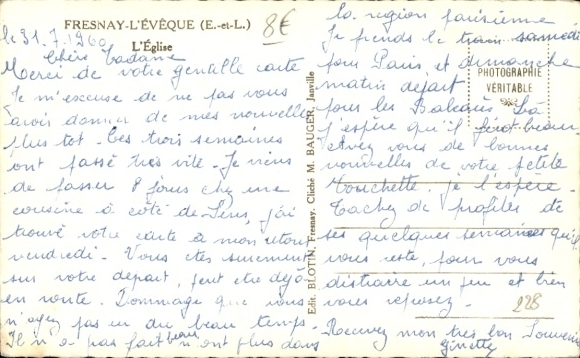 FRESNAY-L'ÉVÊQUE (E.-et-L.)
8€
L'Église
le 31.7.1960
Chère Madame
Merci de votre gentille carte
Je m'excuse de ne pas vous
avoir donner de mes nouvelles
plus tot. Ces trois semaines
ont passé très vite. Je viens
de passer 8 jours chez une
cousine à côté de Sens, j'ai
trouvé votre carte à mon retour
vendredi. Vous êtes surement
sur votre départ, peut être déjà
en route. Dommage que vous
n'ayez pas eu du beau temps.
Il n'a pas fait beau non plus dans
Edit. BLOTIN, Fresnay. Cliché M. BAUGER, Janville
la region parisienne
Je prends le train samedi
pour Paris et dimanche
matin départ
pour les Baléares. Là
j'espère qu'il fera beau
Avez vous de bonnes
nouvelles de votre petite
je l'espère.
Tachez de profiter de
ses quelques semaines qu'il
vous reste, pour vous
distraire un peu et bien
vous reposez.
Recevez mon très bon Souvenir
Ginette
PHOTOGRAPHIE
VÉRITABLE
228